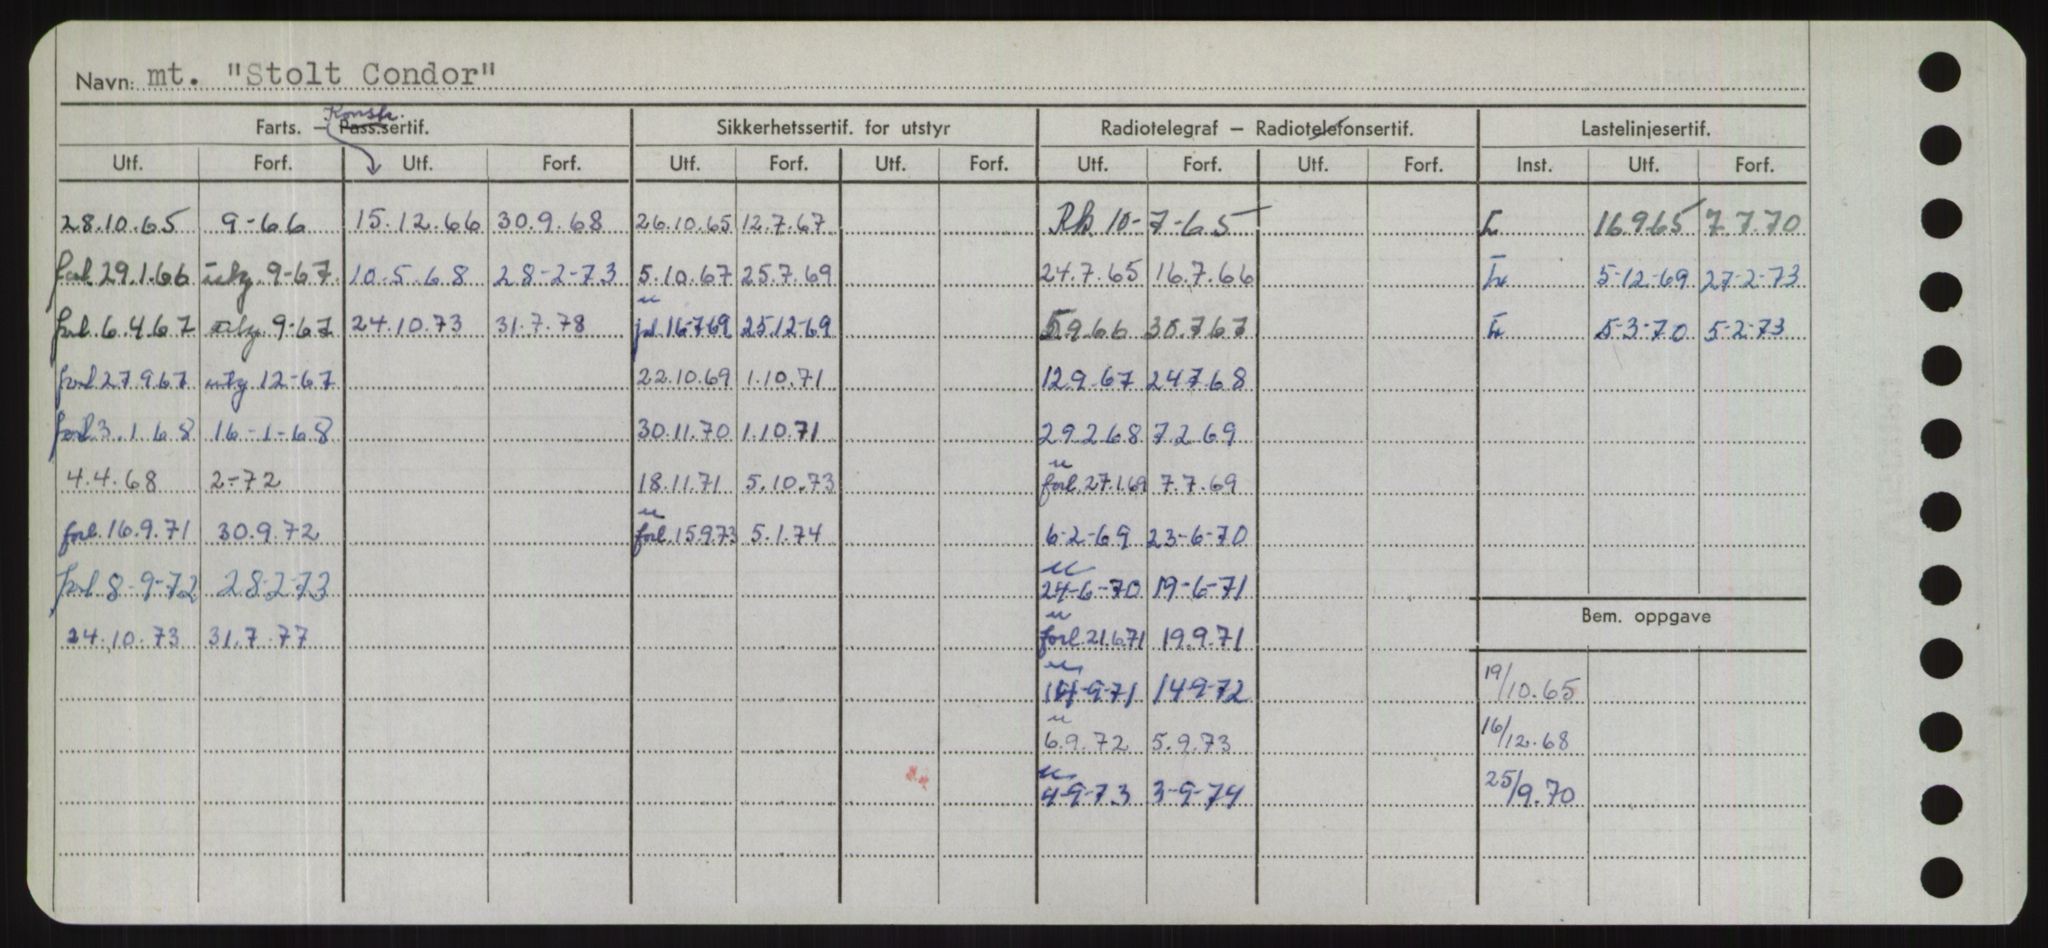 Navn: mt. "Stolt Condor"
Konstr.
Farts. – Pass.sertif. Sikkerhetssertif. for utstyr Radiotelegraf – Radiotelefonsertif. Lastelinjesertif.
Utf. Forf. Utf. Forf. Utf. Forf. Utf. Forf. Utf. Forf. Utf. Forf. Inst. Utf. Forf.
28.10.65 9-66 15.12.66 30.9.68 26.10.65 12.7.67 Rk. 10-7-65 16.9.65 7.7.70
forl 29.1.66 9-67 10-5-68 28-2-73 5.10.67 25.7.69 24.7.65 16.7.66 5-12-69 27-2-73
forl. 6.4.67 9-67 24.10.73 31.7.78 16-7-69 25.12-69 5.9.66 30.7.67 5-3-70 5-2-73
forl 27.9.67 utg 12-67 22.10.69 1.10.71 12.9.67 24.7.68
forl 3.1.68 16-1-68 30.11.70 1.10.71 29.2.68 7.2.69
4.4.68 2-72 18.11.71 5.10.73 forl. 27.1.69 7.7.69
forl. 16.9.71 30.9.72 forl. 15.9.73 5.1.74 6-2-69 23-6-70
forl. 8-9-72 28-2-73 24-6-70 19-6-71
Bem. oppgave
24.10.73 31.7.77 forl. 21.6.71 19.9.71
14-9-71 14-9-72 19/10.65
6.9.72 5.9.73 16/12.68
4-9-73 3-9-74 25/9.70